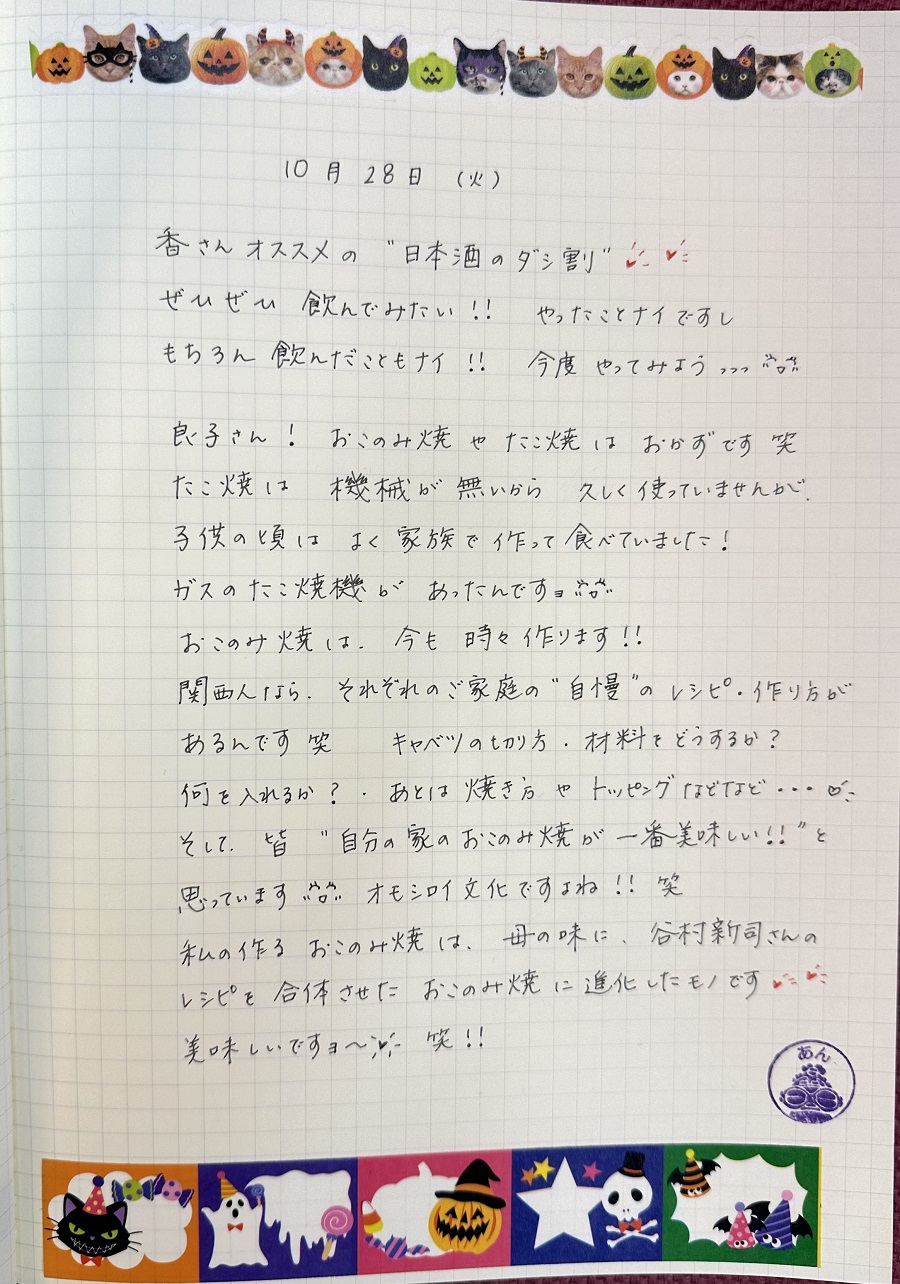 10月28日 (火)
香さん オススメの "日本酒のダシ割"
ぜひぜひ 飲んでみたい!! やったことナイですし
もちろん 飲んだこともナイ!! 今度 やってみようっっっ
良子さん! おこのみ焼 や たこ焼 は おかずです 笑
たこ焼は 機械が 無いから 久しく使っていませんが、
子供の頃は よく 家族で 作って 食べていました!
ガスの たこ焼機が あったんですョ
おこのみ焼は、今も 時々作ります!!
関西人なら、それぞれのご家庭の"自慢"の レシピ・作り方が
あるんです 笑 キャベツの切り方・材料をどうするか?
何を入れるか?・あとは 焼き方 や トッピングなどなど・・・
そして、皆 "自分の家のおこのみ焼が 一番美味しい!!"と
思っています オモシロイ文化ですよね!! 笑
私の作る おこのみ焼は、母の味に、谷村新司さんの
レシピを 合体させた おこのみ焼に進化したモノです
美味しいですョ〜 笑!!
あん